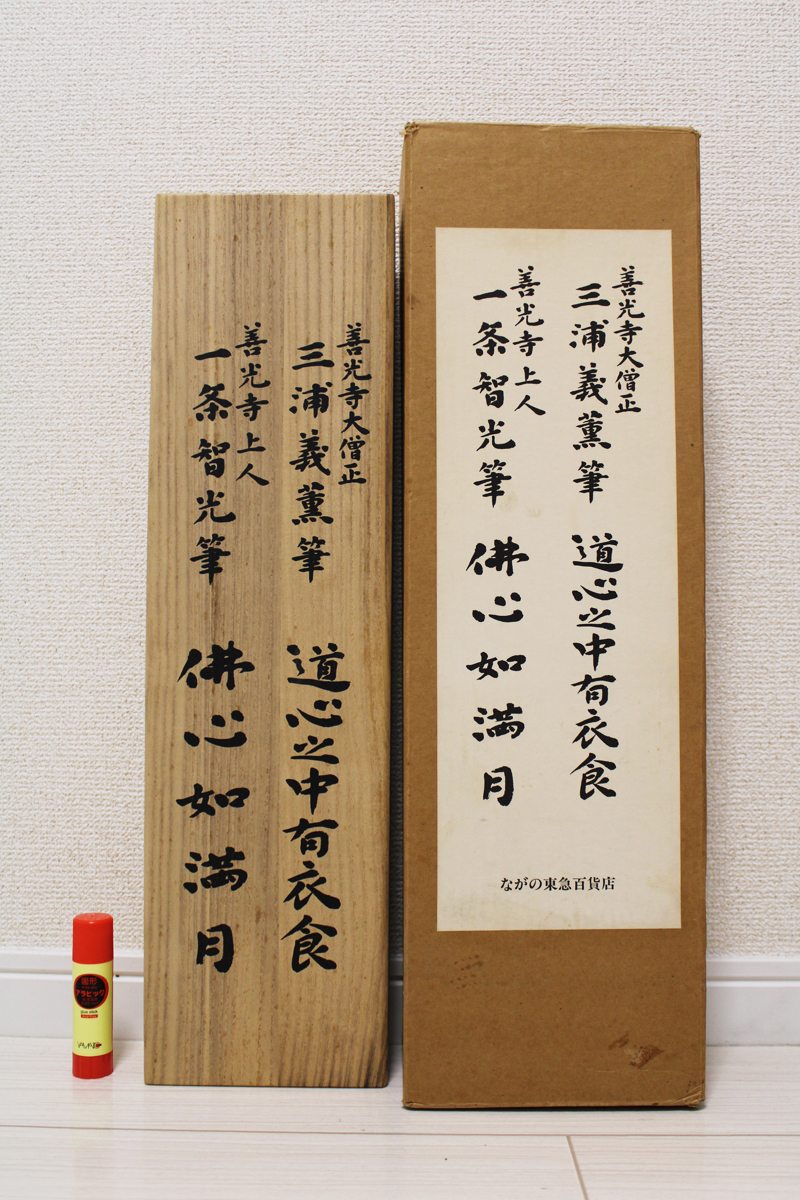 善光寺大僧正
三浦義薫筆 道心之中有衣食
善光寺上人
一条智光筆 佛心如満月
善光寺大僧正
三浦義薫筆 道心之中有衣食
善光寺上人
一条智光筆 佛心如満月
ながの東急百貨店
固形
アラビック
YAMATO